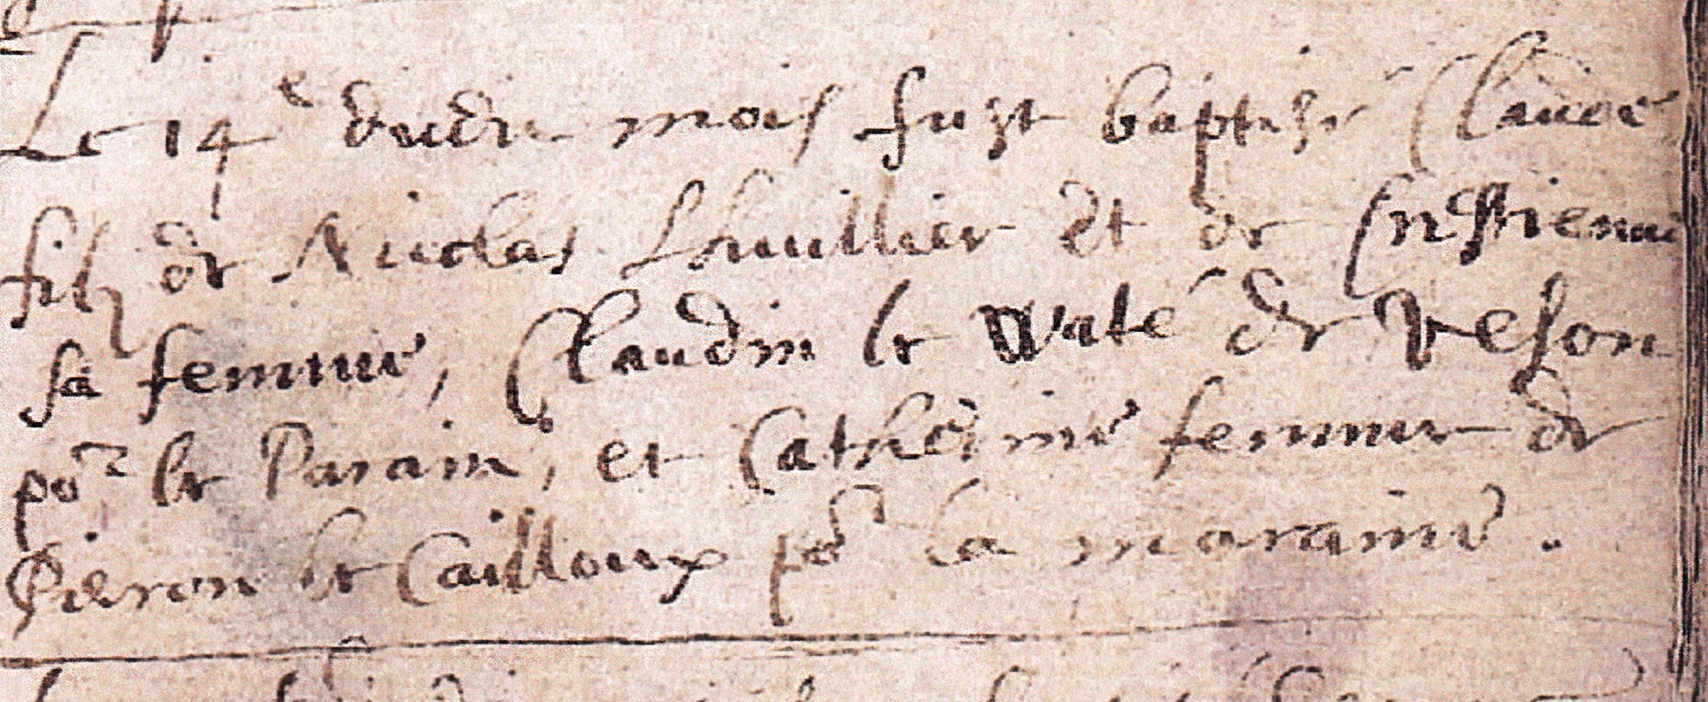 Le 14e dudit mois fuzt baptisé Claude
filz de Nicolas Lhuillier et de Chrestienne
sa femme, Claudin le Waté de Veson
por le Parain, et Catherine femme de
Pieron le Cailloux por la maraine.